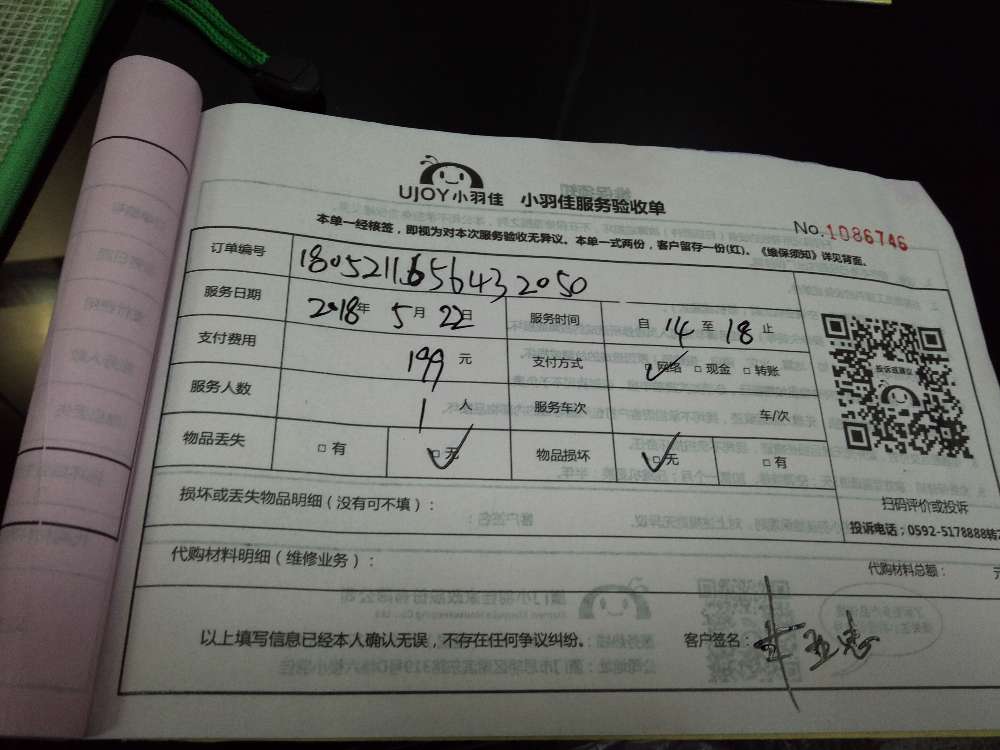 UJOY小羽佳 小羽佳服务验收单
No.1086746
本单一经核签，即视为对本次服务验收无异议。本单一式两份，客户留存一份(红)。《维保须知》详见背面。
订单编号 180521165643 2050
服务日期 2018年 5月 22日 服务时间 自 14 至 18 止
支付费用 199 元 支付方式 □网络 □现金 □转账
服务人数 1 人 服务车次 车/次
物品丢失 □有 □无 物品损坏 □无 □有
投诉或建议
扫码评价或投诉
投诉电话：0592-5178888转
损坏或丢失物品明细（没有可不填）：
代购材料明细（维修业务）：
代购材料总额： 元
以上填写信息已经本人确认无误，不存在任何争议纠纷。 客户签名：